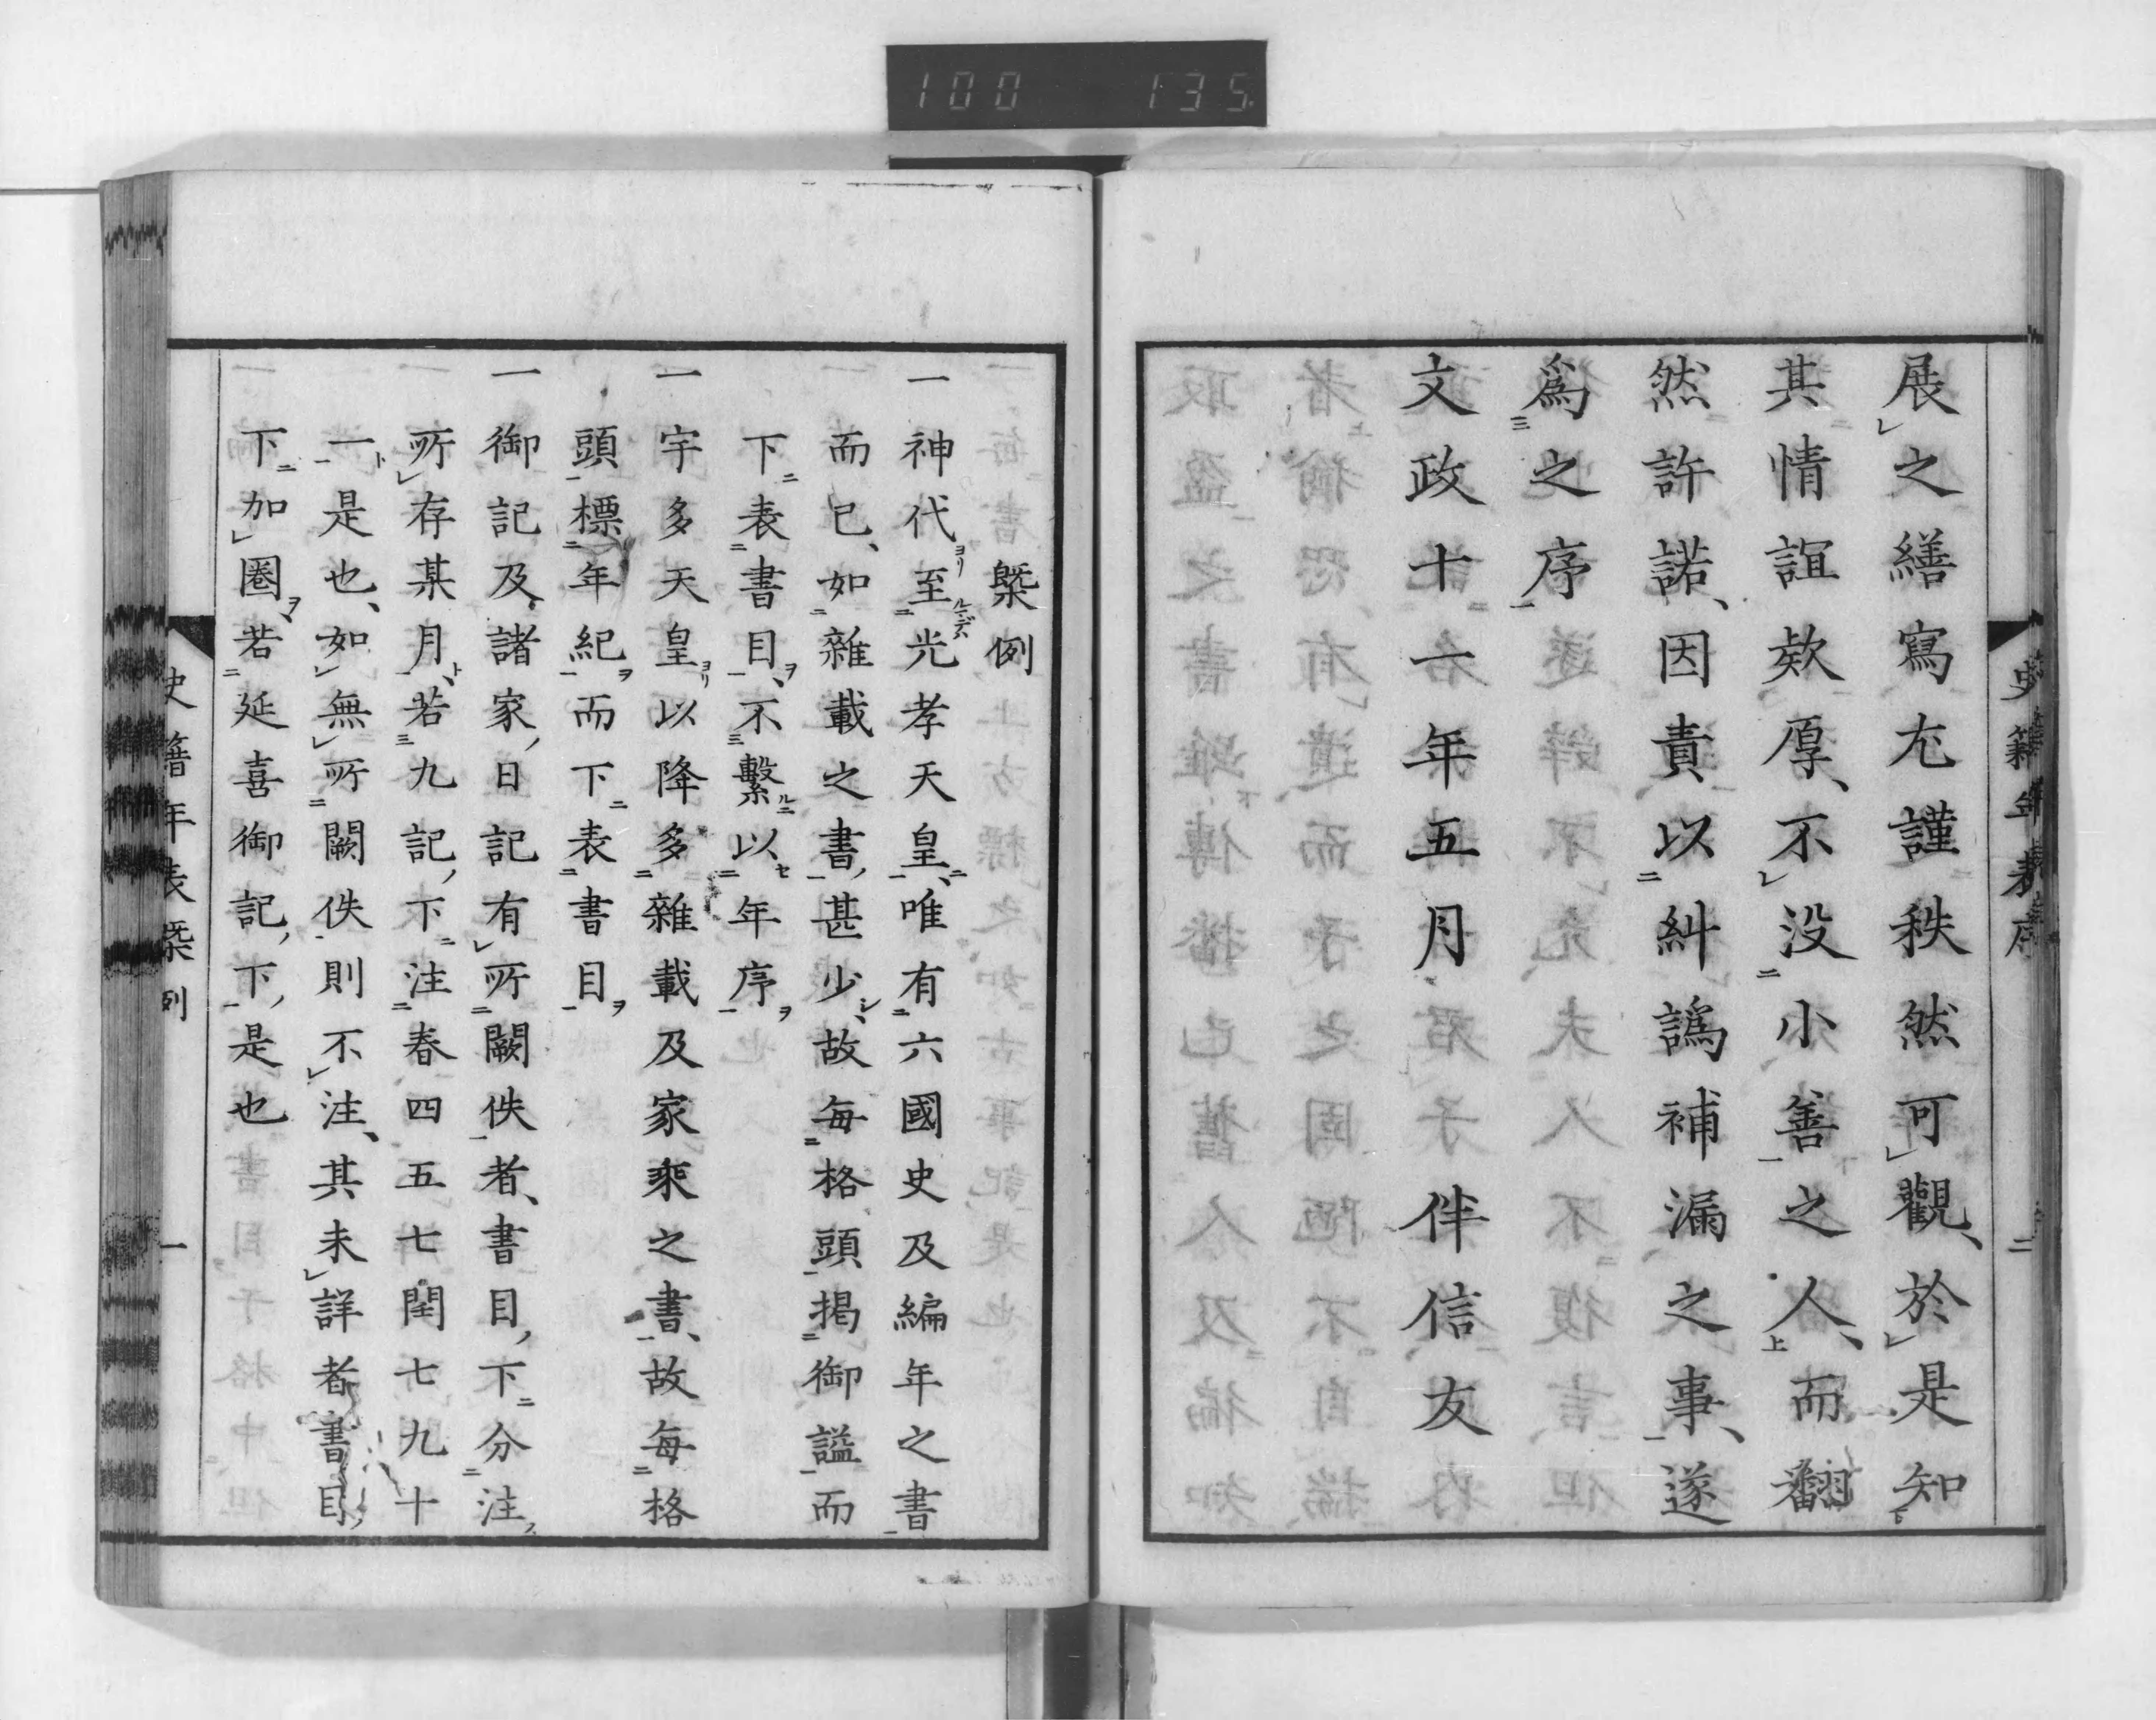 100 135
展之繕寫尢謹秩然可觀、於是知
其情誼欵厚、不没小善之人、而翻
然許諾、因責以糾譌補漏之事、遂
爲之序
文政十一年五月 伴信友
槩例
一神代至光孝天皇、唯有六國史及編年之書
而已、如雜載之書、甚少、故每格頭掲御謚而
下表書目、不繫以年序、
一宇多天皇以降多雜載及家乘之書、故每格
頭標年紀而下表書目
一御記及諸家、日記有所闕佚者、書目、下分注
所存某月、若九記、下注春四五七閏七九十
一是也、如無所闕佚則不注、其未詳者書目、
下加圈、若延喜御記、下、是也
史籍年表槩例 一